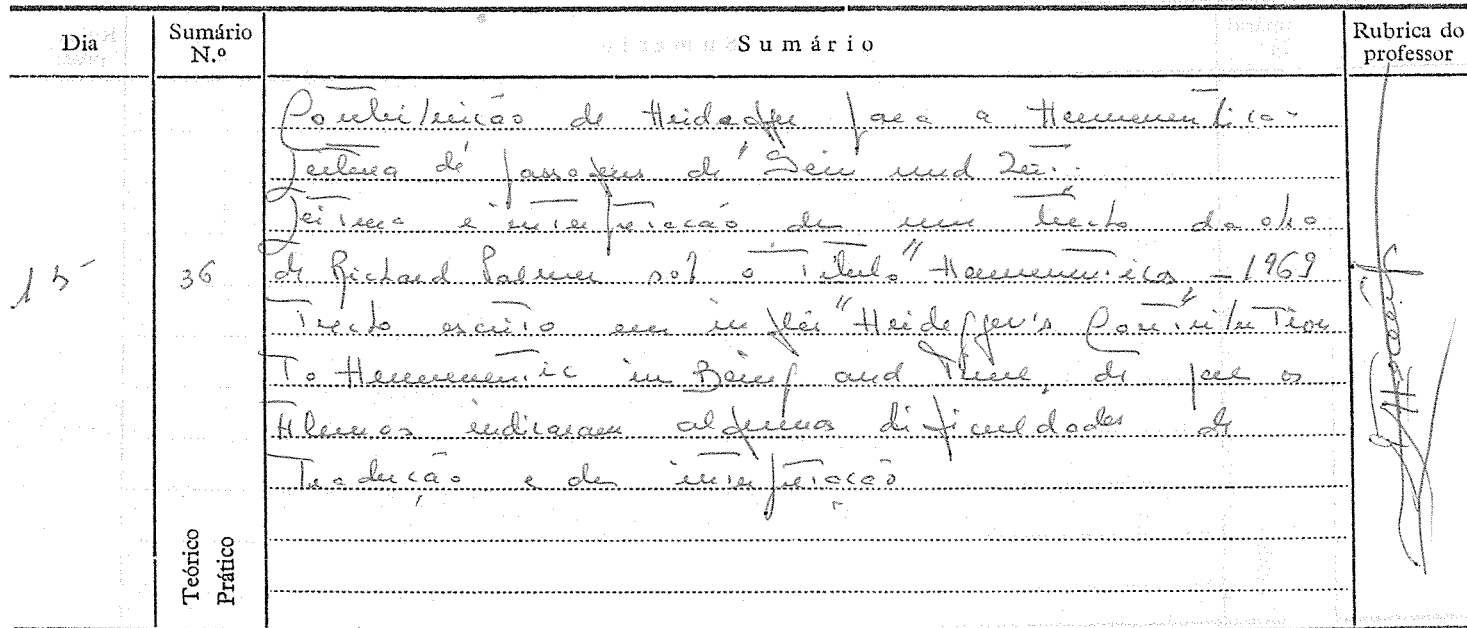 Dia Sumário N.º Sumário Rubrica do professor
Contribuição de Heidegger para a Hermenêutica-
Leitura de passagens de "Sein und Zeit".
Leitura e interpretação de um trecho da obra
15 36 de Richard Palmer sob o Título "Hermenêutica - 1969
Trecho escrito em inglês "Heidegger's Contribution
To Hermeneutic in Being and Time, de que os
Alunos indicaram algumas dificuldades de
Tradução e de interpretação
Teórico
Prático